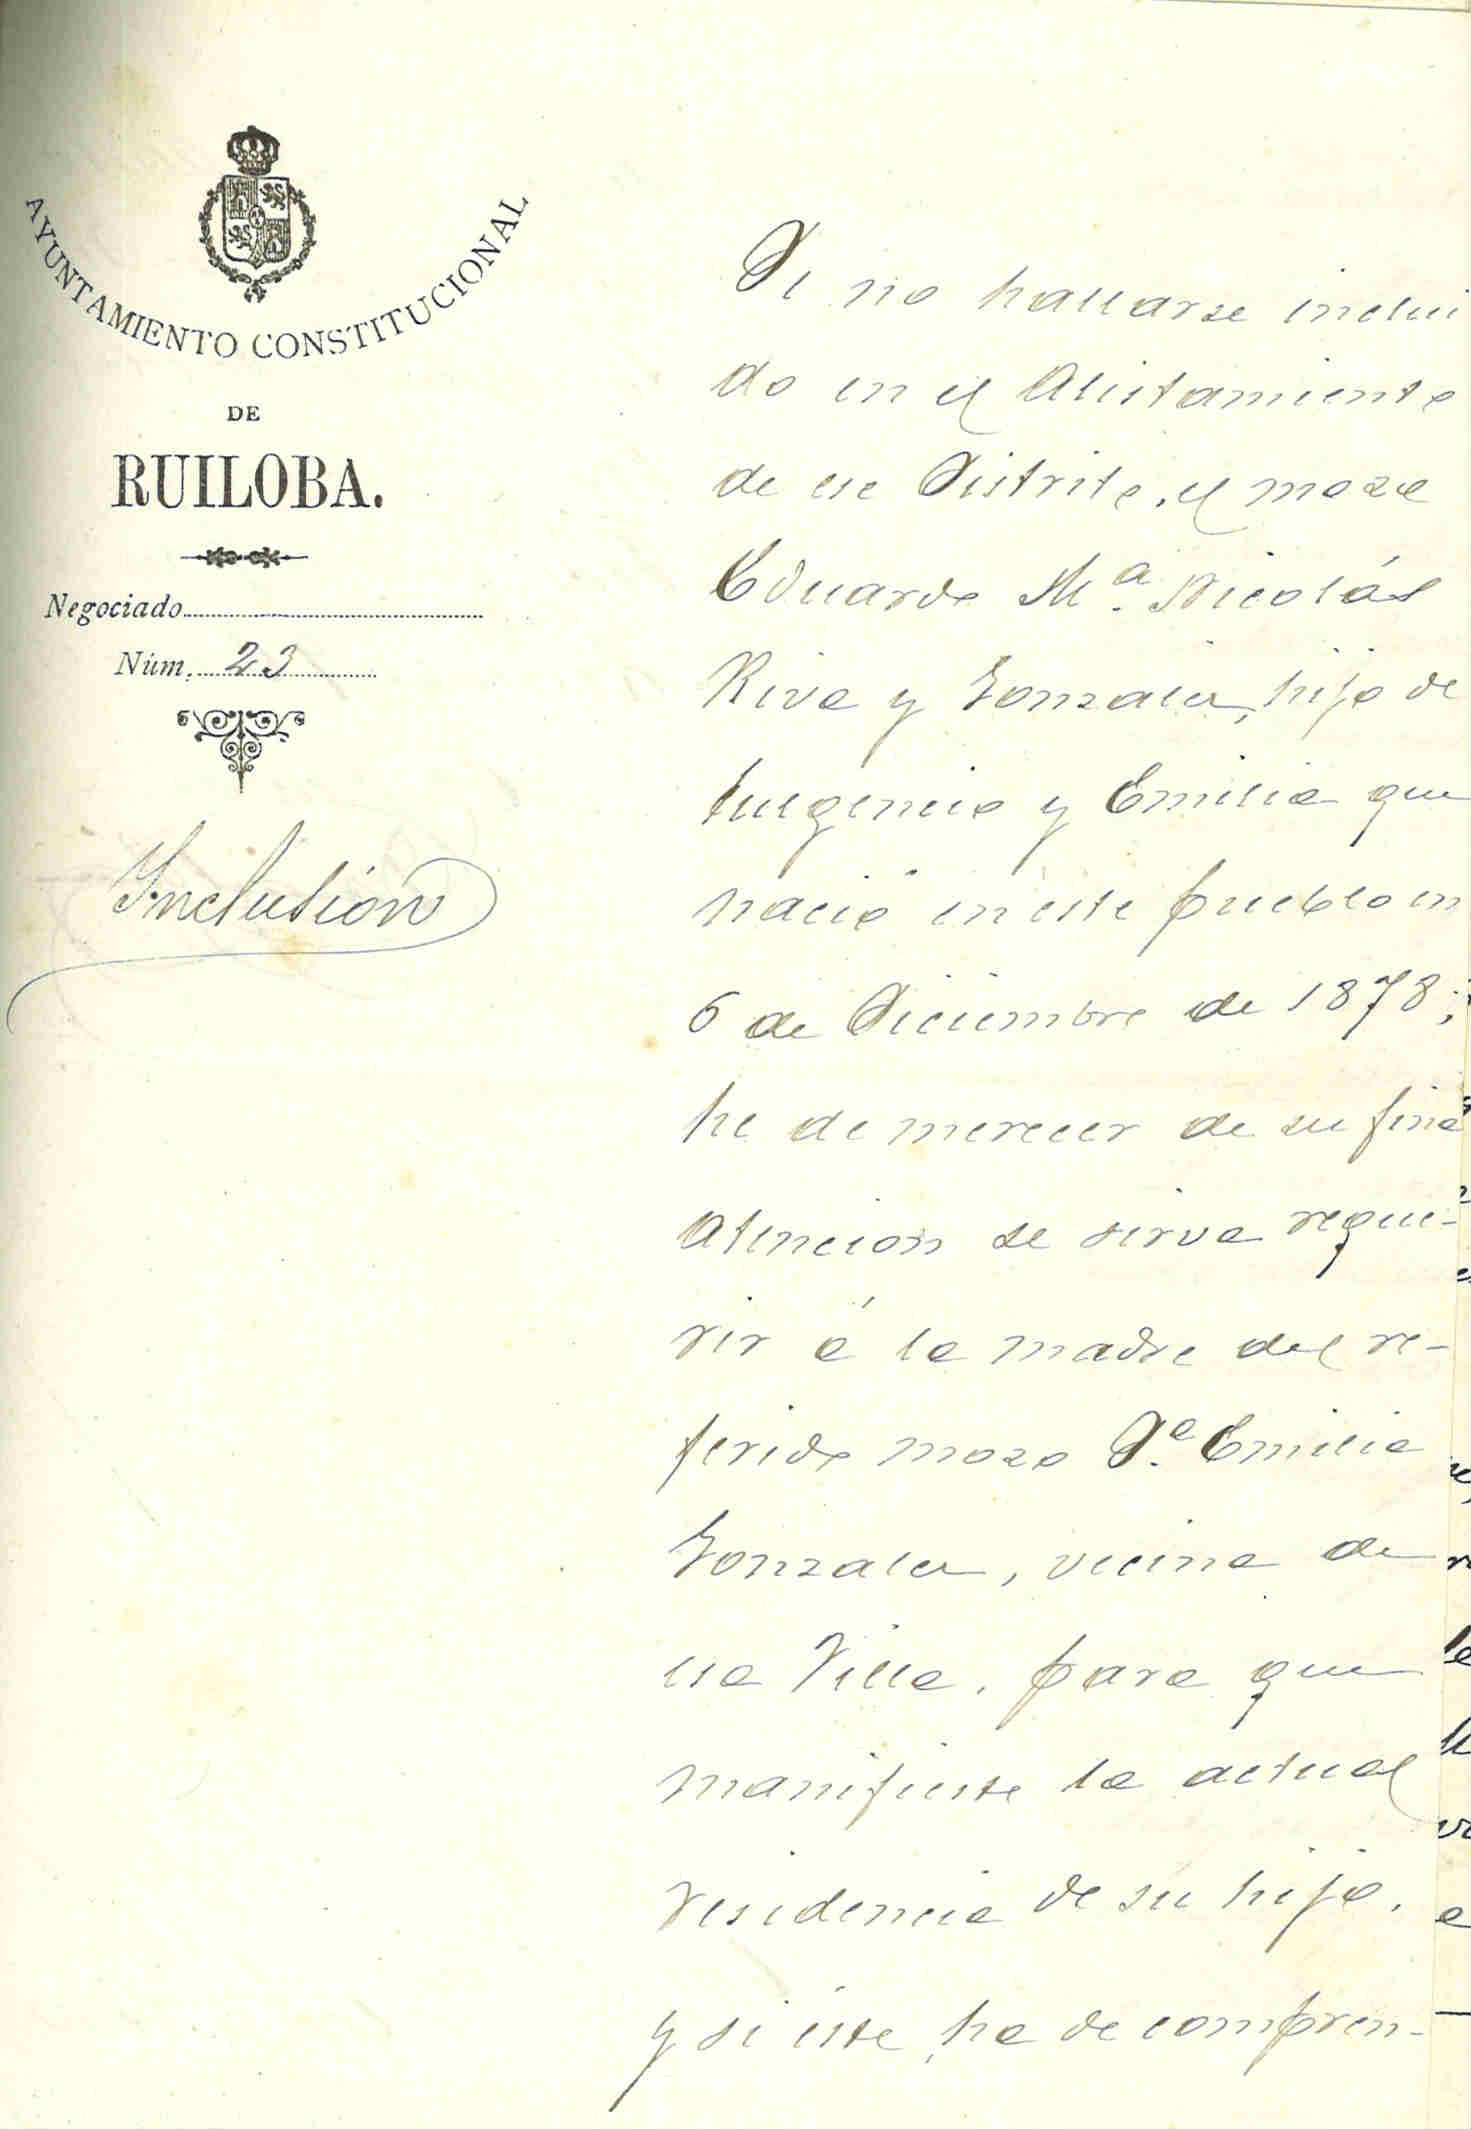 AYUNTAMIENTO CONSTITUCIONAL
DE
RUILOBA.
Negociado
Núm. 23
Inclusión
De no hallarse inclui
do en el Alistamiento
de ese Distrito, el mozo
Eduardo Mª. Nicolás
Riva y Gonzalez, hijo de
Fulgencio y Emilia que
nació en este pueblo en
6 de Diciembre de 1878;
he de merecer de su fina
atencion se sirva reque-
rir á la madre del re-
ferido mozo Dª. Emilia
Gonzalez, vecina de
esa Villa, para que
manifieste la actual
residencia de su hijo,
y si éste ha de compren-